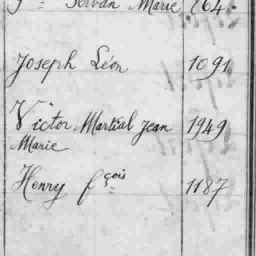 Servan Marie 764
Joseph Léon 1091
Victor Martial Jean 1949
Marie
Henry fçois 1187